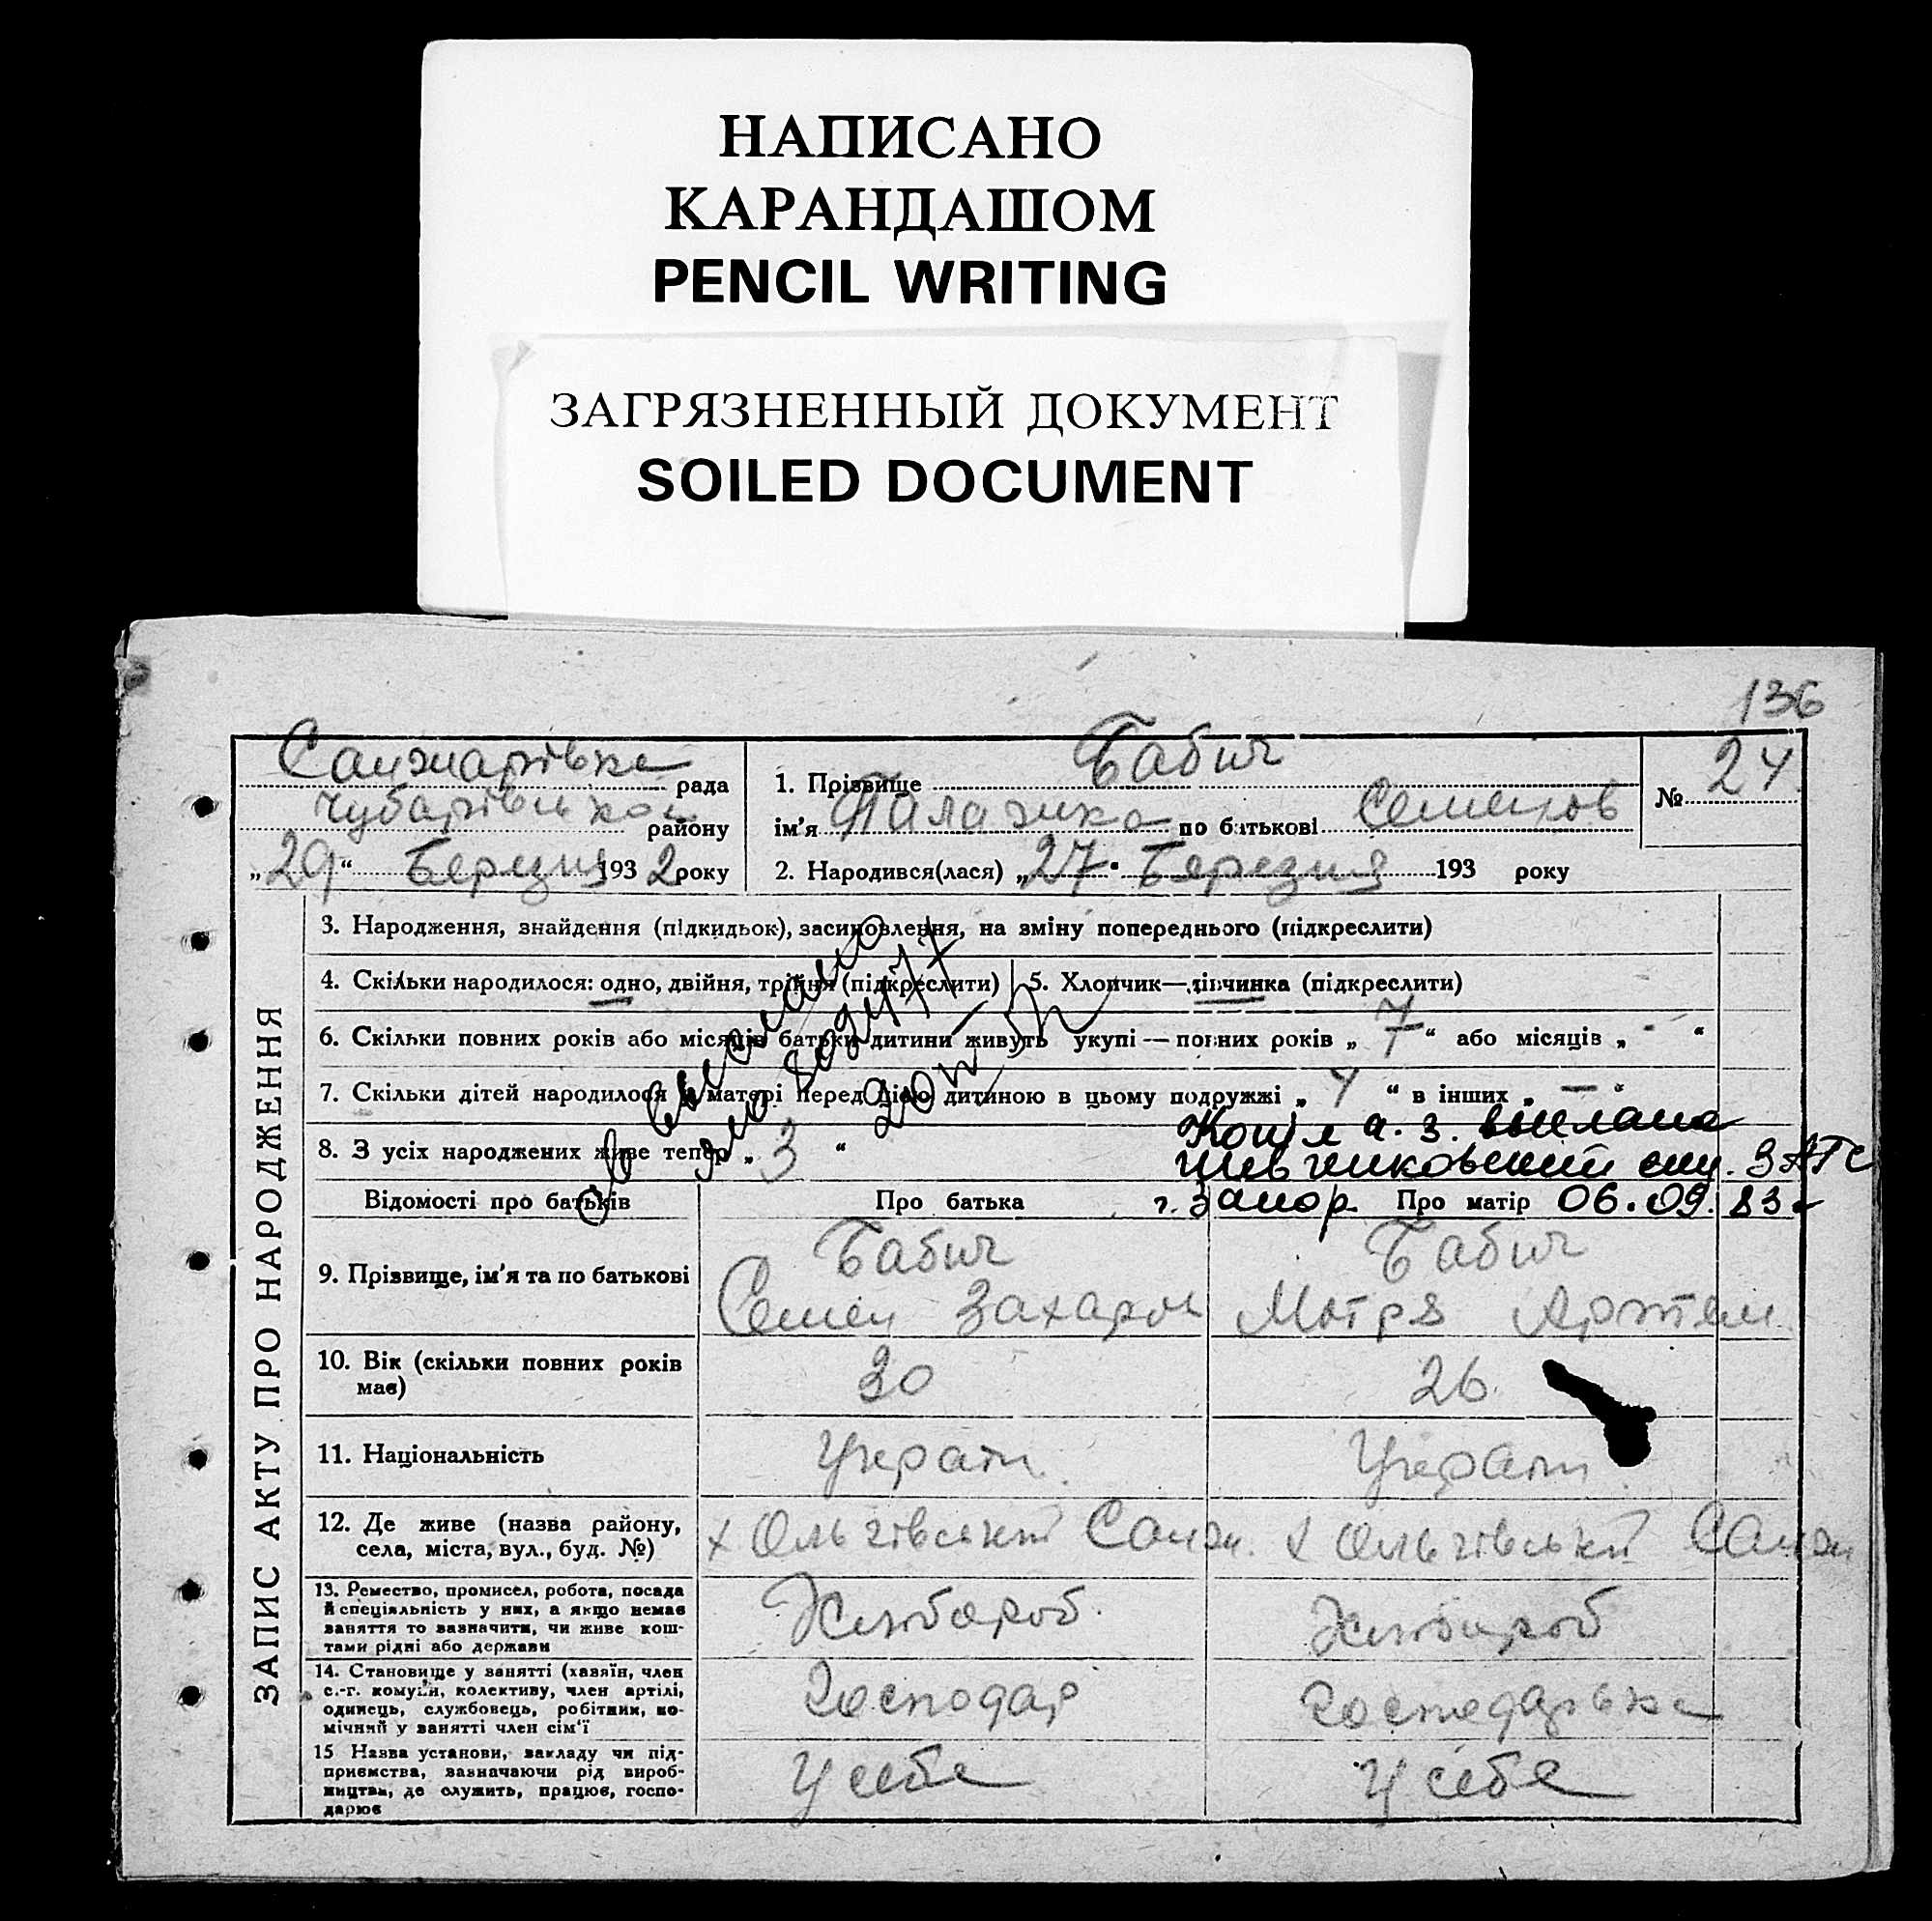 НАПИСАНО
КАРАНДАШОМ
PENCIL WRITING
ЗАГРЯЗНЕННЫЙ ДОКУМЕНТ
SOILED DOCUMENT
136
Санжарівка рада
Чубарівської району
„29“ Березня 1932 року
1. Прізвище Бабич
ім'я Палажка по батькові Семенов
№ 24
2. Народився(лася) „27“ Березня 193 року
ЗАПИС АКТУ ПРО НАРОДЖЕННЯ
3. Народження, знайдення (підкидьок), засиновлення, на зміну попереднього (підкреслити)
4. Скільки народилося: одно, двійня, трійня (підкреслити)
5. Хлопчик—дівчинка (підкреслити)
6. Скільки повних років або місяців батьки дитини живуть укупі — повних років „7“ або місяців „-“
7. Скільки дітей народилося у матері перед цією дитиною в цьому подружжі „4“ в інших „—“
8. З усіх народжених живе тепер „3“
Копія а. з. выслана
Шевченковский ЗАГС
г. Запор. 06.09.83
Відомості про батьків Про батька Про матір
9. Прізвище, ім'я та по батькові
Бабич
Семен Захаров
Бабич
Мотря Артем
10. Вік (скільки повних років
має)
30
26
11. Національність
Украін
Украін
12. Де живе (назва району,
села, міста, вул., буд. №)
х Ольгівський Санж.
х Ольгівський Санж
13. Ремество, промисел, робота, посада
й спеціяльність у них, а якщо немає
заняття то зазначити, чи живе кош-
тами рідні або держави
Хлібороб
Хлібороб
14. Становище у занятті (хазяїн, член
с.-г. комуни, колективу, член артілі,
одинець, службовець, робітник, по-
мічний у занятті член сім'ї
Господар
Господарька
15 Назва установи, закладу чи під-
приємства, зазначаючи рід вироб-
ництва, де служить, працює, госпо-
дарює
У себе
У себе